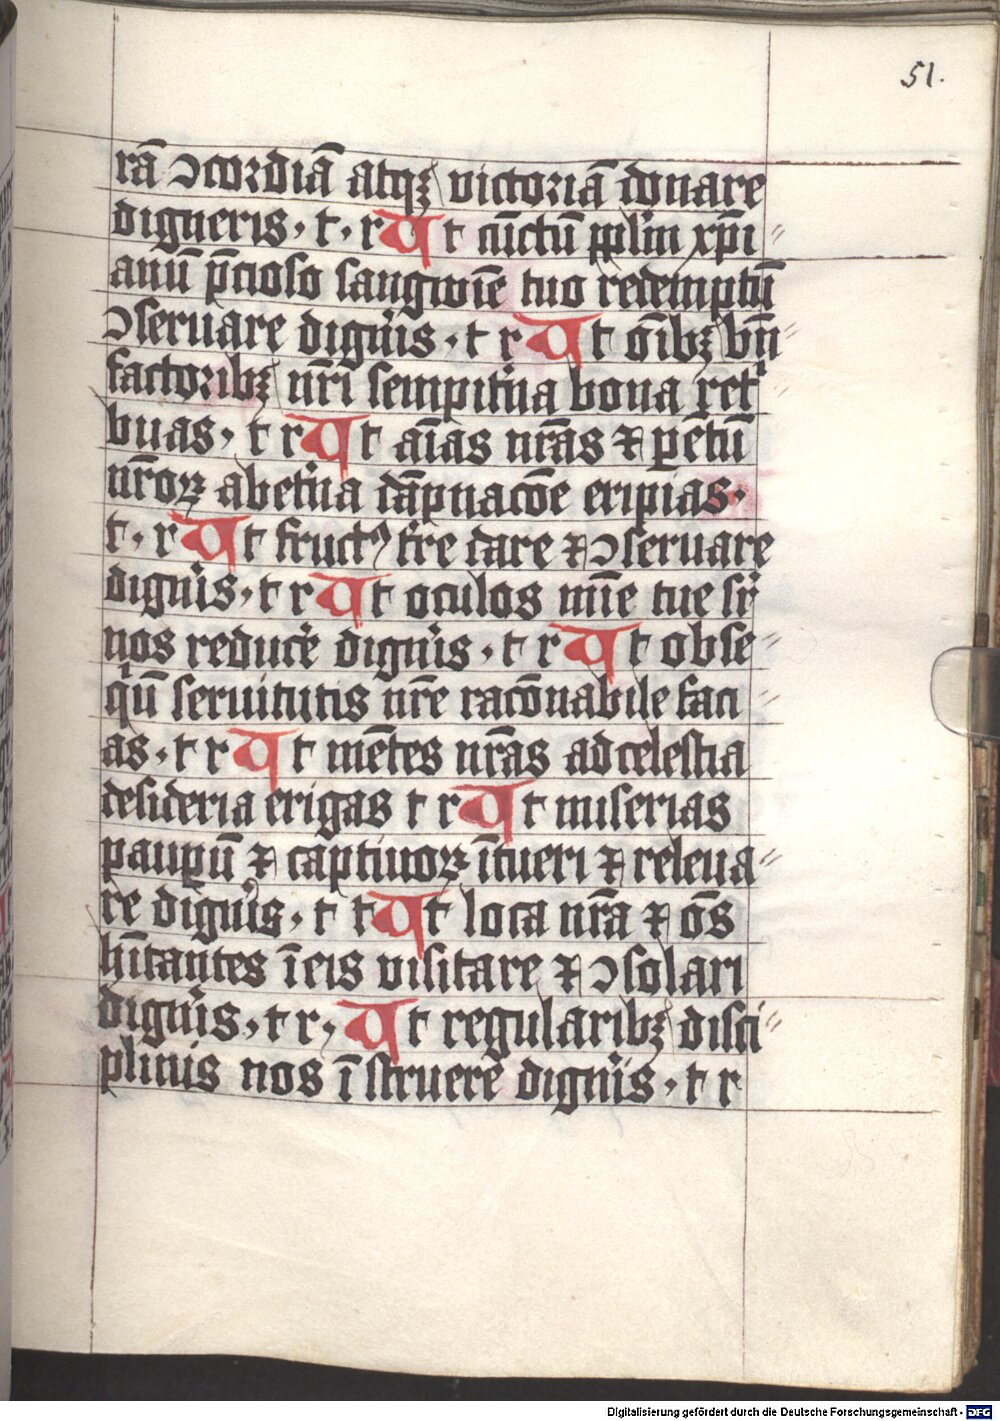 51.
rā ꝯcordiā atqꝫ victoriā donare
digneris · t · r Ut cūctū pplm xp̄i
anū p̄cioso sangwīe tuo redemptū
ꝯseruare dignis · t r Ut oībꝫ bn̄
factoribꝫ nr̄i sempitna bona ret
buas · t r Ut aīas nr̄as ⁊ pētū
nr̄oꝝ abetna dāpnacōe eripias ·
t · r Ut fructꝰ tre dare ⁊ ꝯseruare
dignis · t r Ut oculos mīe tue sr
nos reduce dignis · t r Ut obse
qū seruitutis nr̄e racōnabile faci
as · t r Ut mētes nr̄as ad celestia
desideria erigas t r Ut miserias
paupū ⁊ captiuoꝝ ītueri ⁊ releua
re dignis · t r Ut loca nr̄a ⁊ ōs
hītantes ī eis visitare ⁊ ꝯsolari
dignis · t r · Ut regularibꝫ disci
plinis nos īstruere dignis · t r
Digitalisierung gefördert durch die Deutsche Forschungsgemeinschaft - DFG